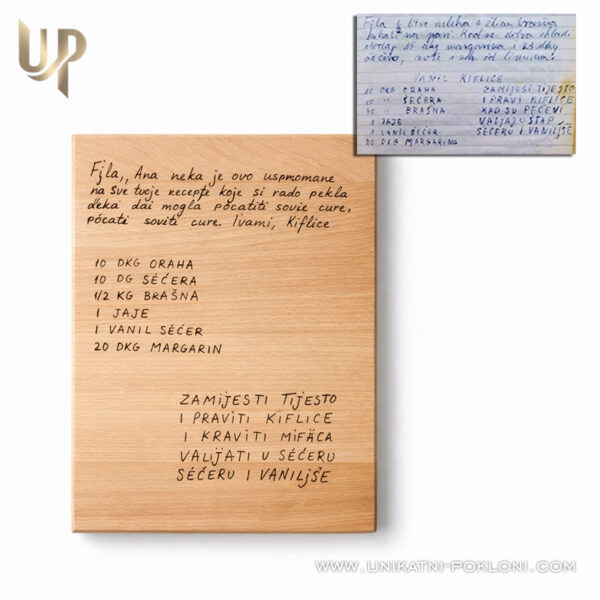 UP
Fila i litre mlieka 2 žlice brašna
kuhati na pari. Kad se dobro ohladi
dodaj 15 dkg margarina i 23 dkg
šećera, sok od limuna.
VANIL KIFLICE
10 DKG ORAHA
10 " ŠEĆERA
30 " BRAŠNA
1 JAJE
1 VANIL ŠEĆER
20 DKG MARGARINA
ZAMIJESI TIJESTO
I PRAVI KIFLICE
KAD SU PEČENI
VALJAJ U ŠTAP
ŠEĆERU I VANILJŠE
Fjla,, Ana neka je ovo uspmomane
na sve tvoje recepte koje si rado pekla
deka dai mogla pocatiti sovie cure,
pócati soviti cure. Ivami, Kiflice
10 DKG ORAHA
10 DG SÉĆERA
1/2 KG BRAŠNA
1 JAJE
1 VANIL SÉĆER
20 DKG MARGARIN
ZAMIJESTI TIJESTO
I PRAVITI KIFLICE
I KRAVITI MIFÄCA
VALIJATI U SÉĆERU
SÉĆERU I VANILJŠE
WWW.UNIKATNI-POKLONI.COM